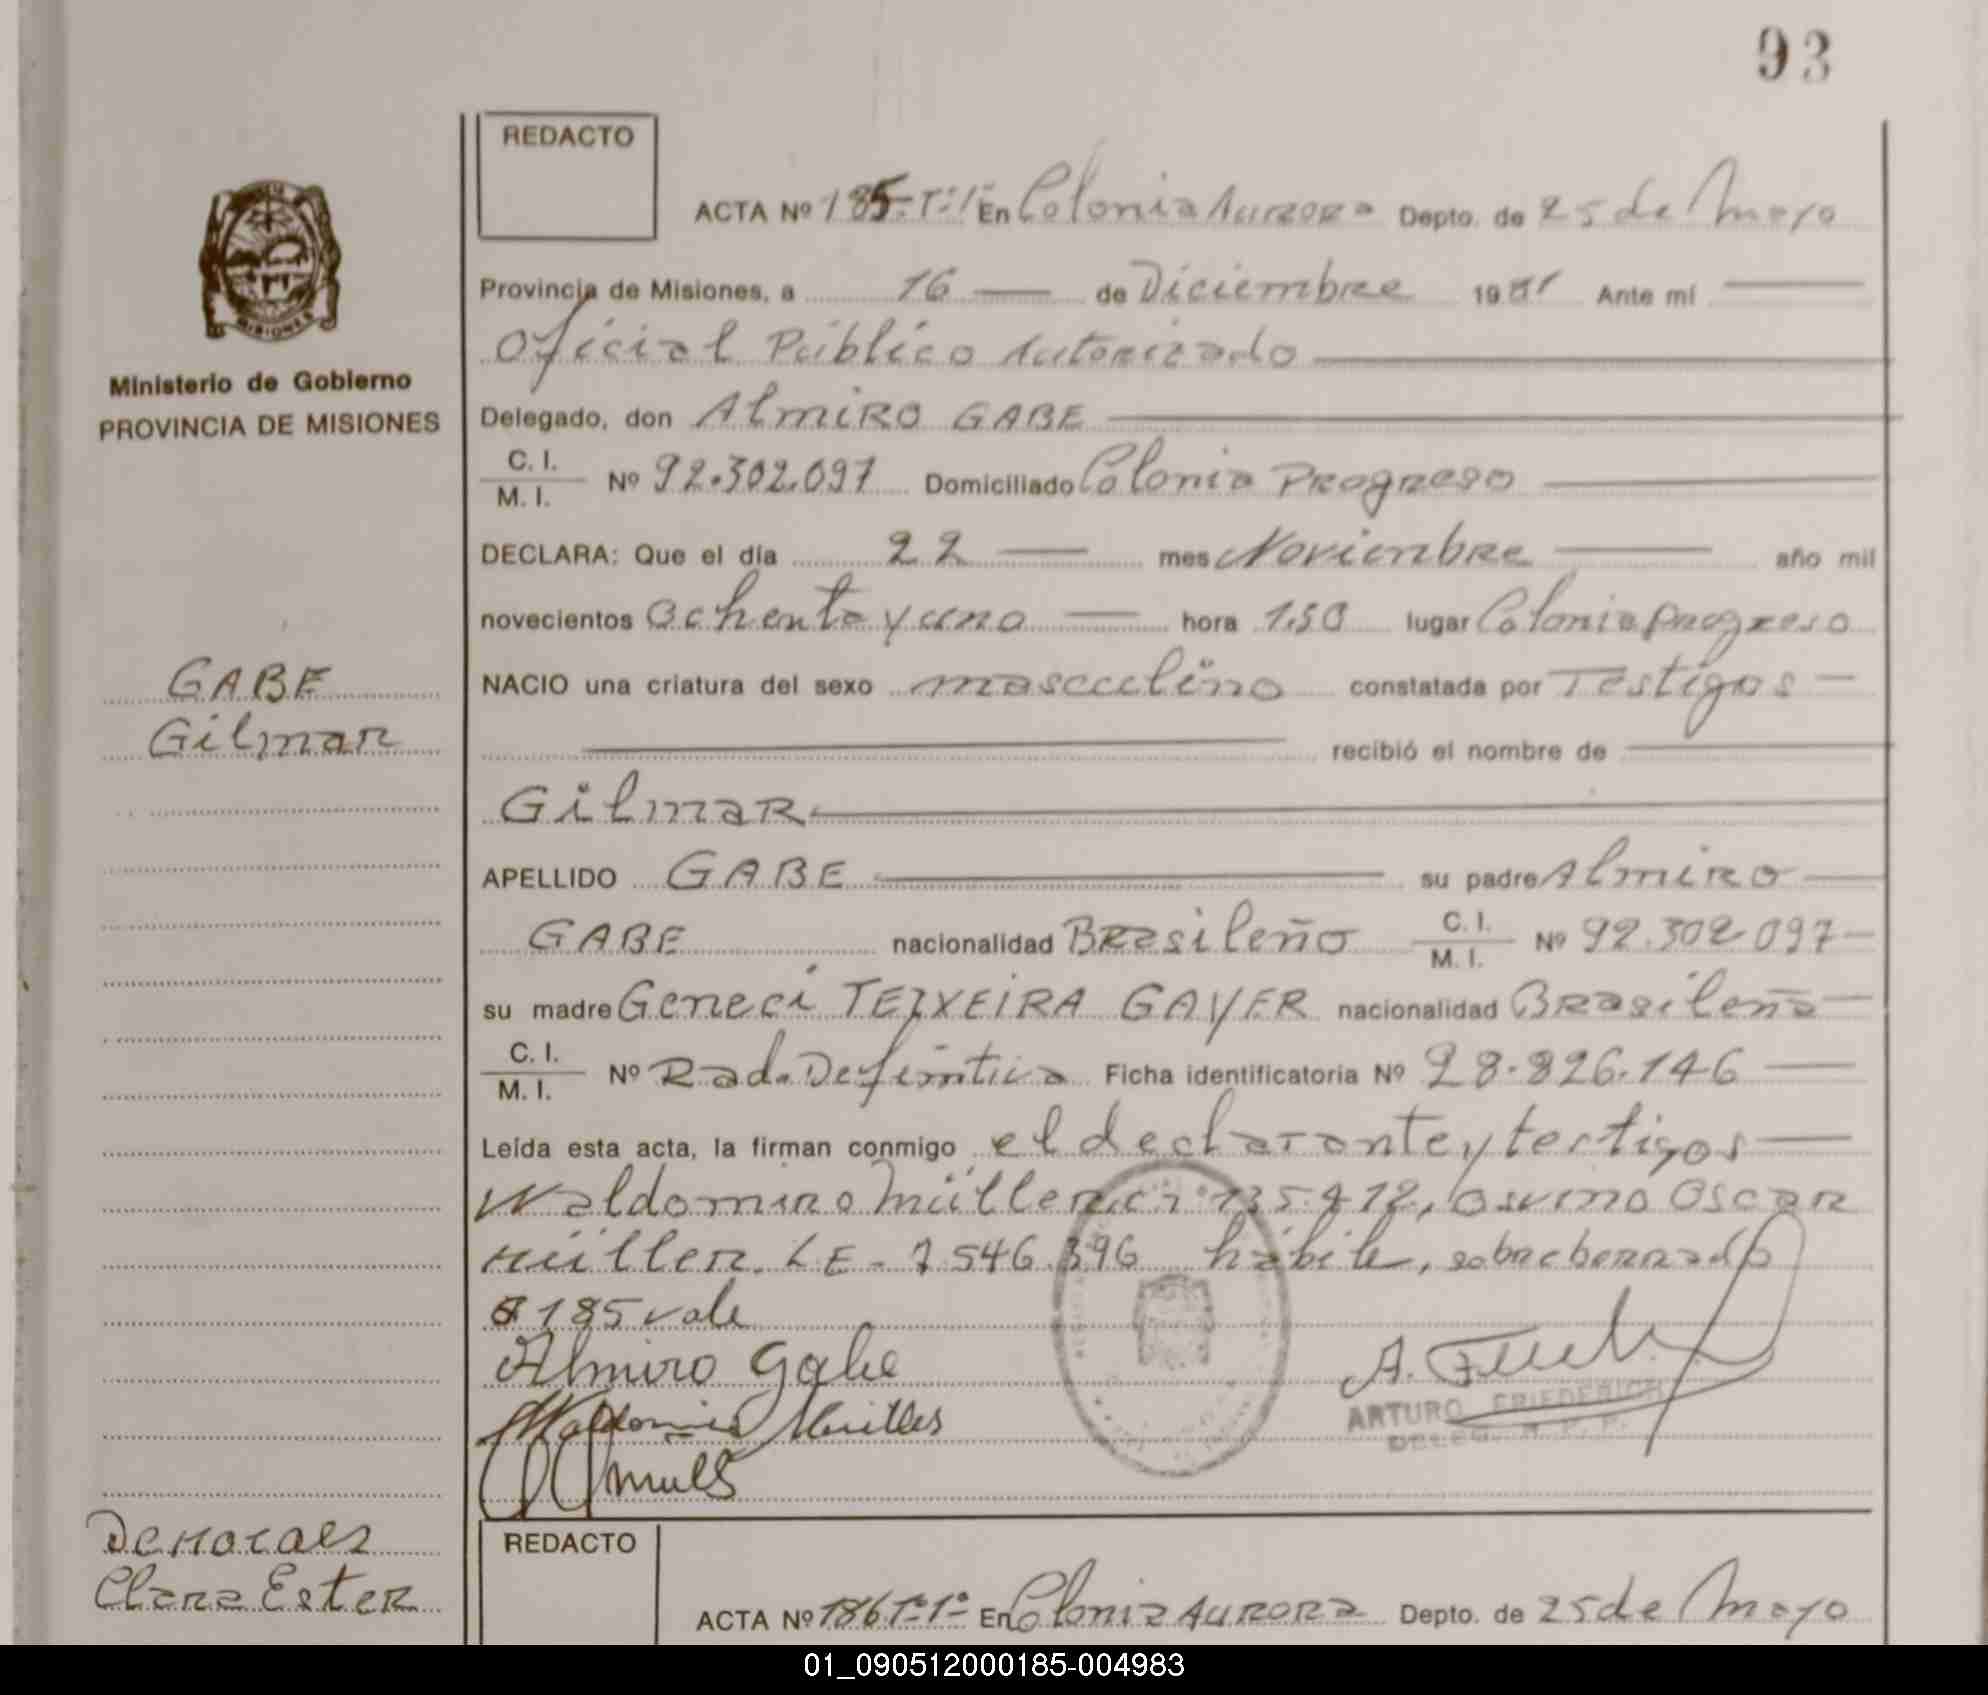 93
REDACTO
ACTA Nº 185-Tº1º En Colonia Aurora Depto. de 25 de Mayo
Provincia de Misiones, a 16 de Diciembre 1981 Ante mí
Oficial Público Autorizado
Delegado, don Almiro GABE
C. I.
M. I.
Nº 92.302.097 Domiciliado Colonia Progreso
DECLARA: Que el día 22 mes Noviembre año mil
novecientos Ochenta y uno hora 1,50 lugar Colonia Progreso
NACIO una criatura del sexo masculino constatada por Testigos
recibió el nombre de
Gilmar
APELLIDO GABE su padre Almiro
GABE nacionalidad Brasileño C. I. M. I. Nº 92.302.097
su madre Geneci TEIXEIRA GAYER nacionalidad Brasileña
C. I.
M. I.
Nº Rad. Definitiva Ficha identificatoria Nº 28.826.146
Leída esta acta, la firman conmigo el declarante y testigos
Waldomiro Müller. ci 135.412, Osvino Oscar
Müller. LE- 7.546.396 hábile, sobreborrado
185 vale
Almiro Gabe
A.
ARTURO FRIEDERICH
DELEG. R. P. P.
Ministerio de Gobierno
PROVINCIA DE MISIONES
MISIONES
GABE
Gilmar
De Moraes
Clara Ester
REDACTO
ACTA Nº 186 Tº1º En Colonia Aurora Depto. de 25 de Mayo
01_090512000185-004983